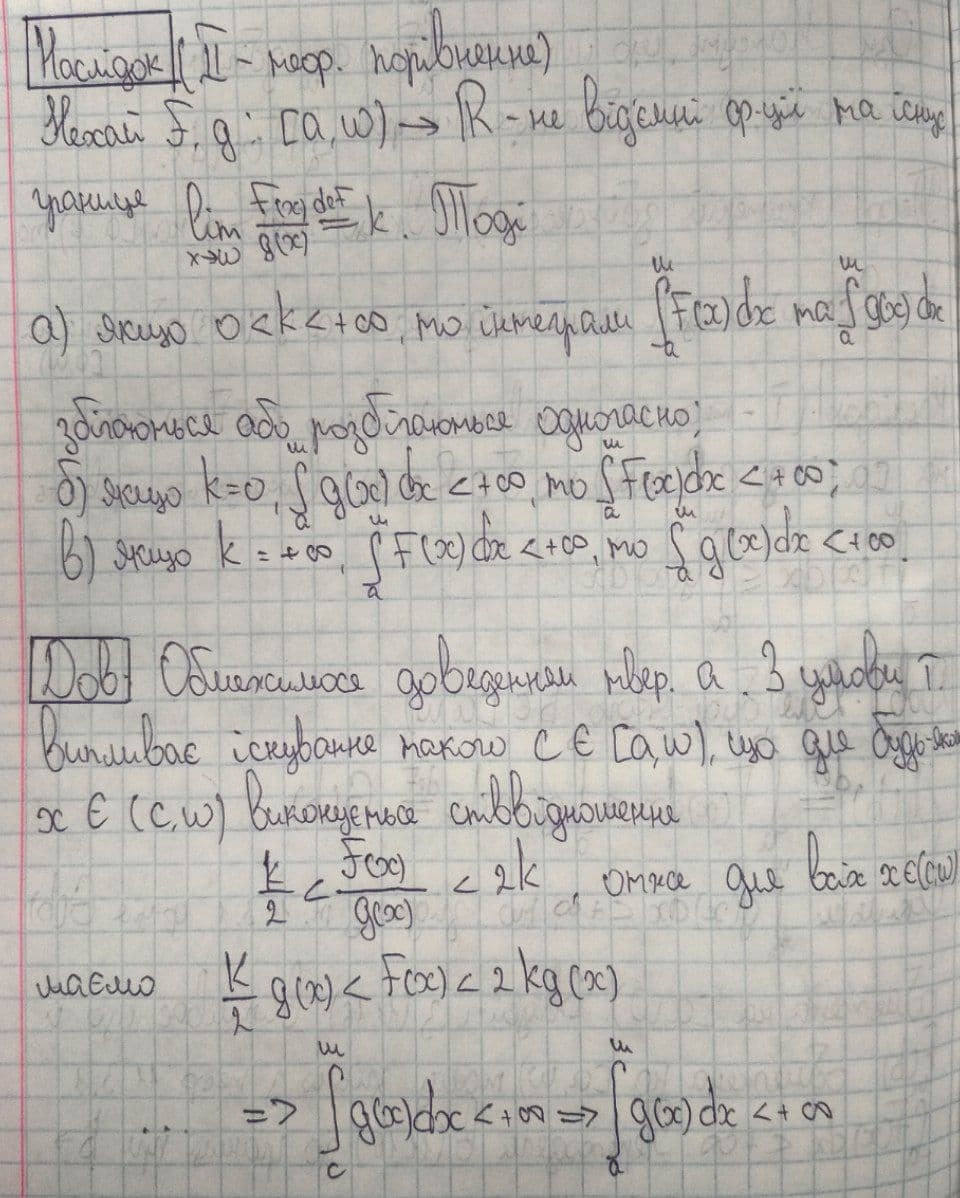 Наслідок (II - теор. порівнення)
Нехай F, g : [a, w) → R - не від'ємні ф-ції та існує
границя lim x→w F(x)/g(x) def= k. Тоді
а) якщо 0 < k < +∞, то інтеграли ∫_a^w F(x)dx та ∫_a^w g(x)dx
збігаються або розбігаються одночасно;
б) якщо k=0, ∫_a^w g(x)dx < +∞, то ∫_a^w F(x)dx < +∞;
в) якщо k = +∞, ∫_a^w F(x)dx < +∞, то ∫_a^w g(x)dx < +∞.
Дов Обмежимося доведенням твер. а. З умови т.
випливає існування такого C ∈ [a, w), що для будь-яког
x ∈ (C, w) виконується співвідношення
k/2 < F(x)/g(x) < 2k, отже для всіх x ∈ (C, w)
маємо K/2 g(x) < F(x) < 2kg(x)
... => ∫_c^w g(x)dx < +∞ => ∫_a^w g(x)dx < +∞